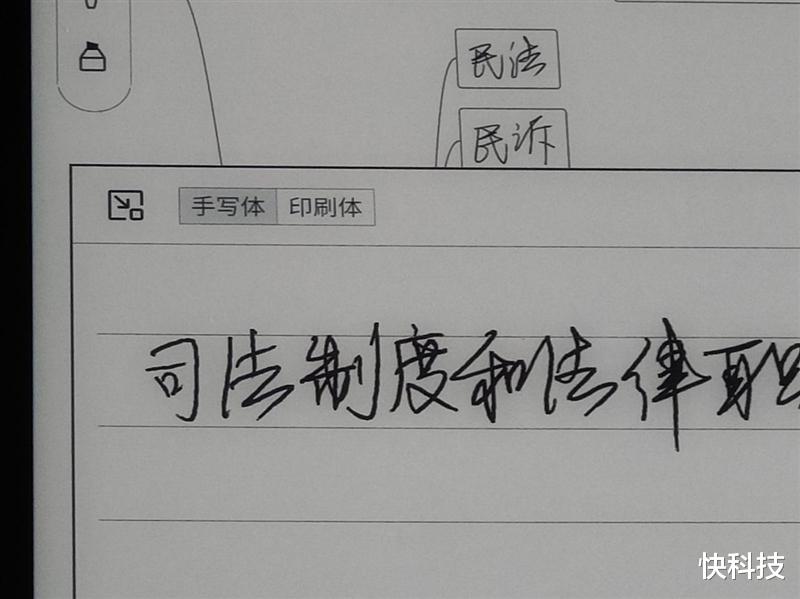 民法
民诉
手写体 印刷体
司法制度和法律职
快科技